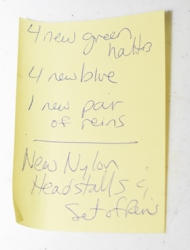 4 new green
haltrs
4 new blue
1 new pair
of reins
New Nylon
Headstalls &
Set of Reins